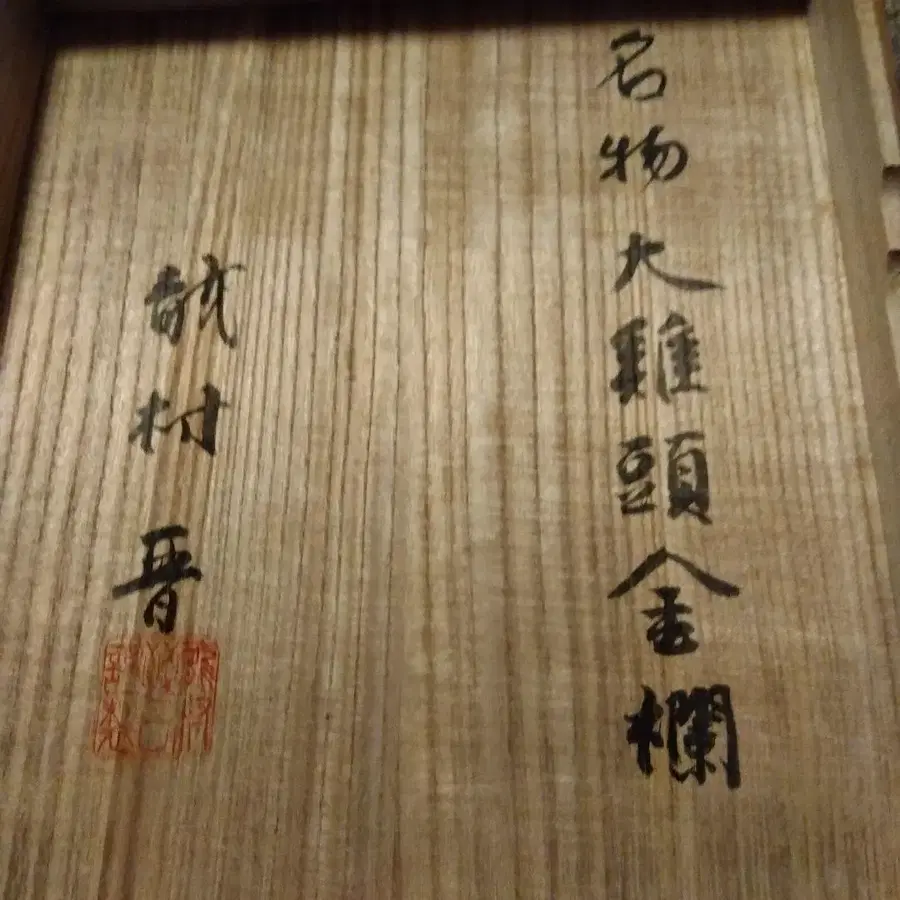 名物大雞頭金欄
龍村 晋